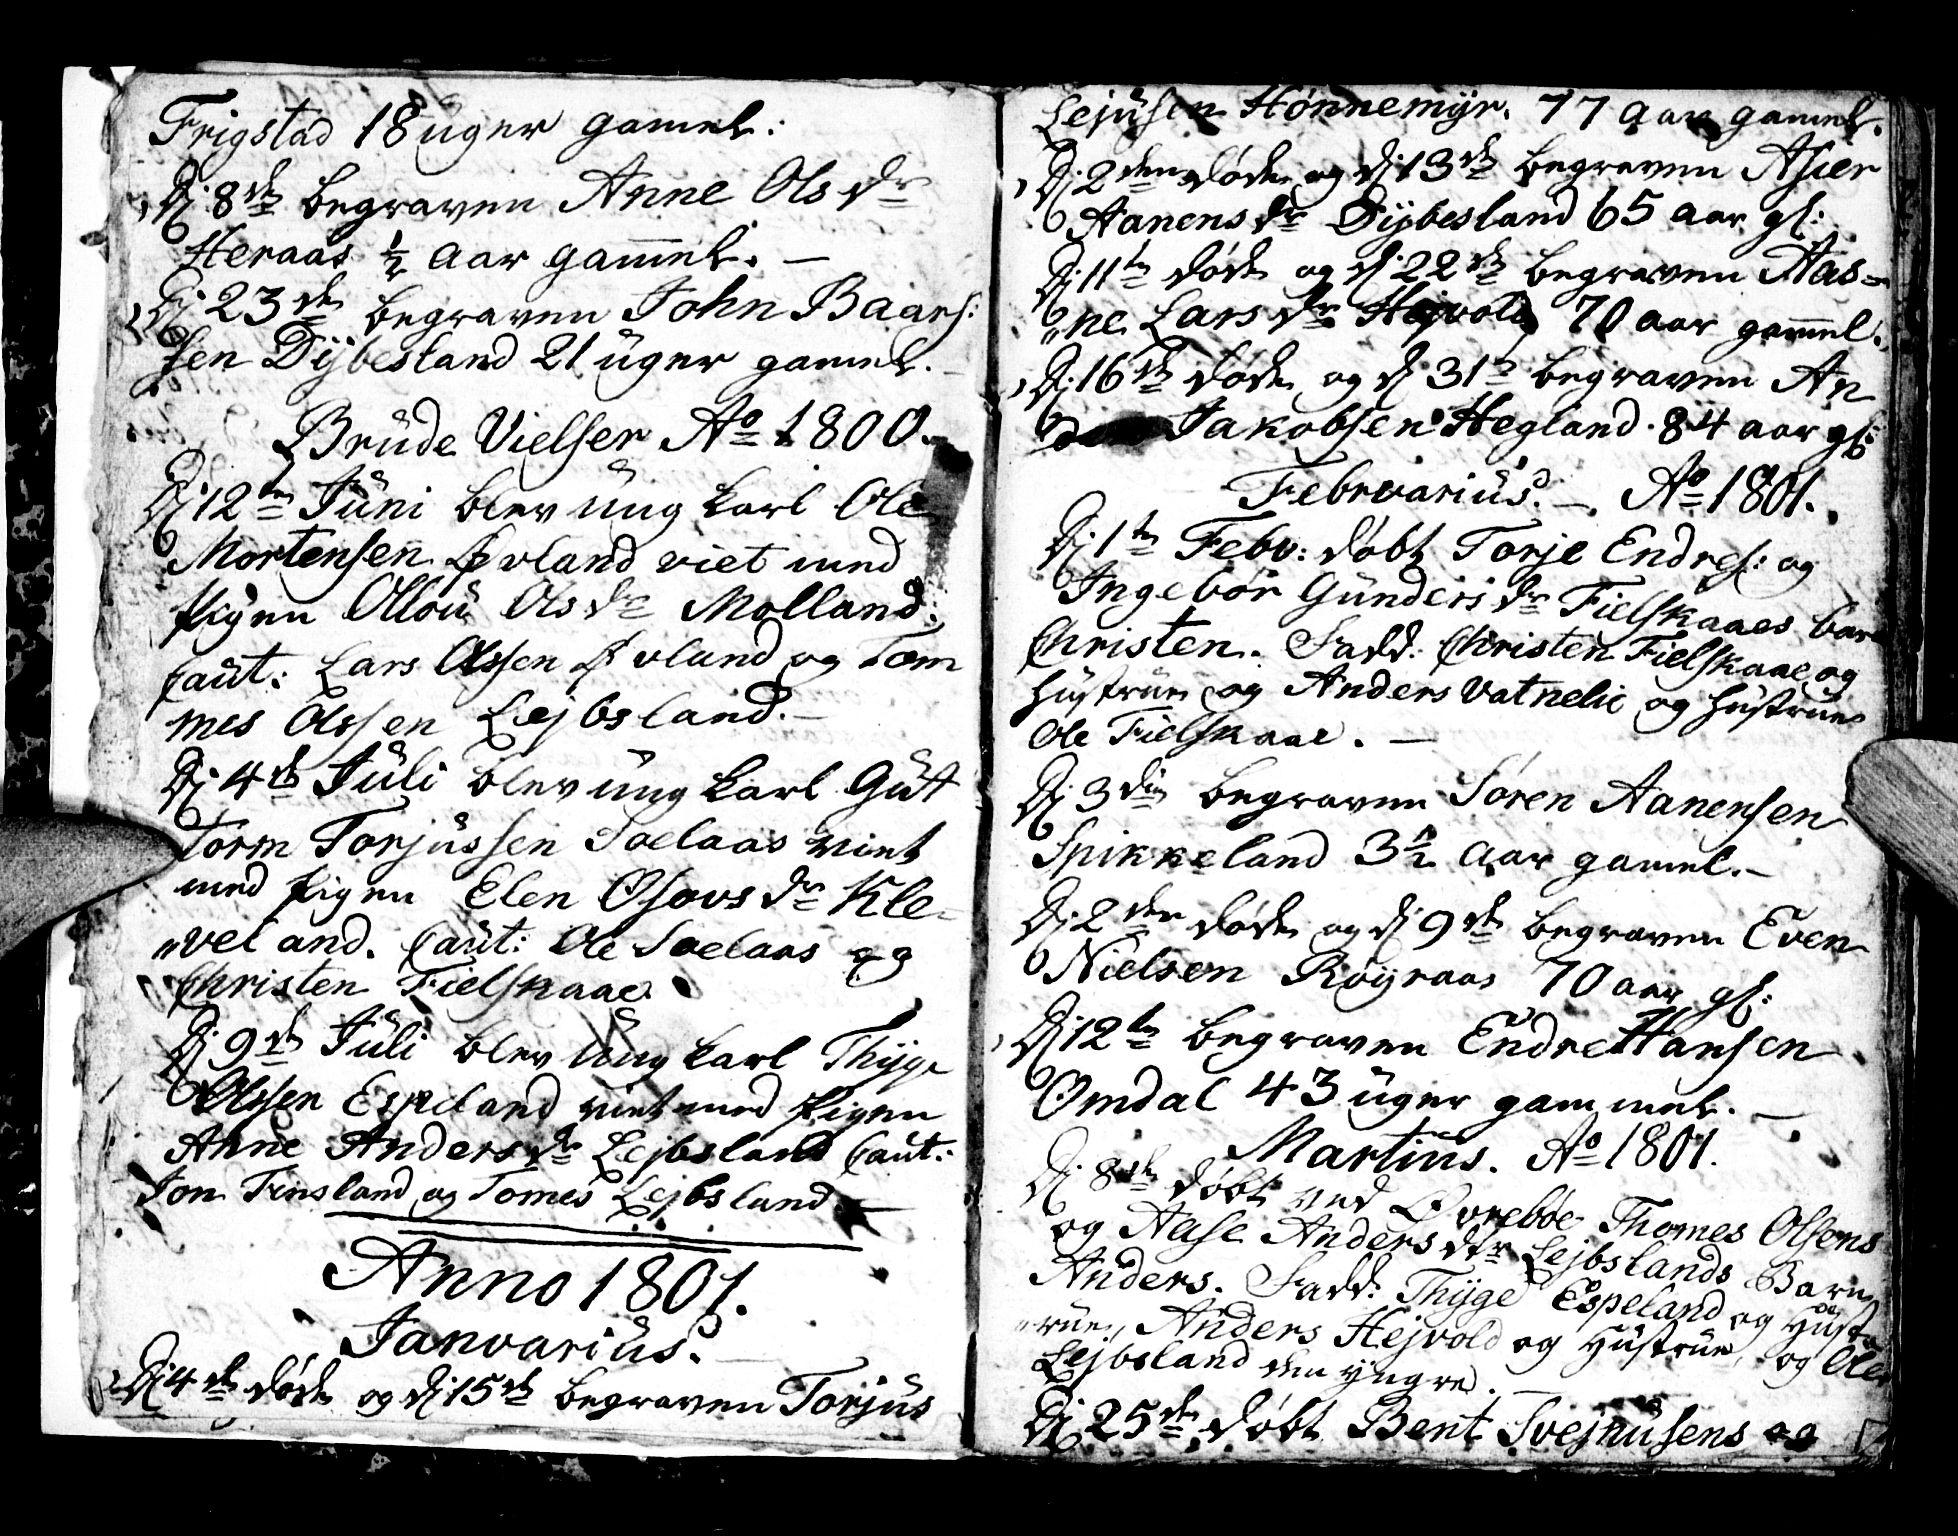 Frigstad 18 uger gamel:
Dj 8de begraven Anne Ols dr
Heraas ½ aar gammel. —
Dj 23de begraven John Baars:
sen Dybesland 21 uger gamel. —
Brude Vielser Ao 1800.
Dj 12te Juni blev ung karl Ole
Mortensen Øvland viet med
pigen Ollou Ols dr Molland:
Caut: Lars Olssen Øvland og Tom
mes Olssen Lejbsland. —
Dj 4de Juli blev ung karl Gut
torm Torjussen Soelaas viet
med pigen Elen Osovs dr Kle-
„veland. Caut: Ole Soelaas og
Christen Fielskaae.
Dj 9de Juli blev ung karl Thyge
Olssen Espeland viet med pigen
Anne Anders dr Lejbsland Caut:
Jon Finsland og Tomes Lejbsland. —
Anno 1801.
Janvarius. —
Dj 4de døde og dj 15de begraven Torjus
Lejusen Hønnemyr. 77 aar gamel.
Dj 2den døde og dj 13de begraven Asier
Aanens dr Dybesland 65 aar gl:
Dj 11te døde og dj 22de begraven Aas-
„ne Lars dr Hejvold 70 aar gammel.
Dj 16de døde og dj 31te begraven An
ders Jakobsen Hegland. 84 aar gl:
Febrvarius. —. Ao 1801.
Dj 1te Febr: døbt Torje Endres: og
Ingebor Gunders dr Fielskaaes barn
Christen. Fadd: Christen Fielskaae og
hustrue og Anders Vatnelie og hustrue
Ole Fielskaae. —
Dj 3die begraven Søren Aanensen
Spikkeland 3½ aar gamel. —
Dj 2den døde og dj 9de begraven Even
Nielsen Røyraas 70 aar gl:
Dj 12te begraven Endre Hansen
Omdal 43 uger gammel. —
Martius. Ao 1801.
Dj 8de døbt ved Øvrebøe Thomes Olsens
og Aase Anders dtr Lejbslands Barn
Anders. Fadd: Thyge Espeland og Hust
„rue, Anders Hejvold og Hustrue, og Ole
Lejbsland den yngre. —
Dj 25de døbt Bent Svejnusens og